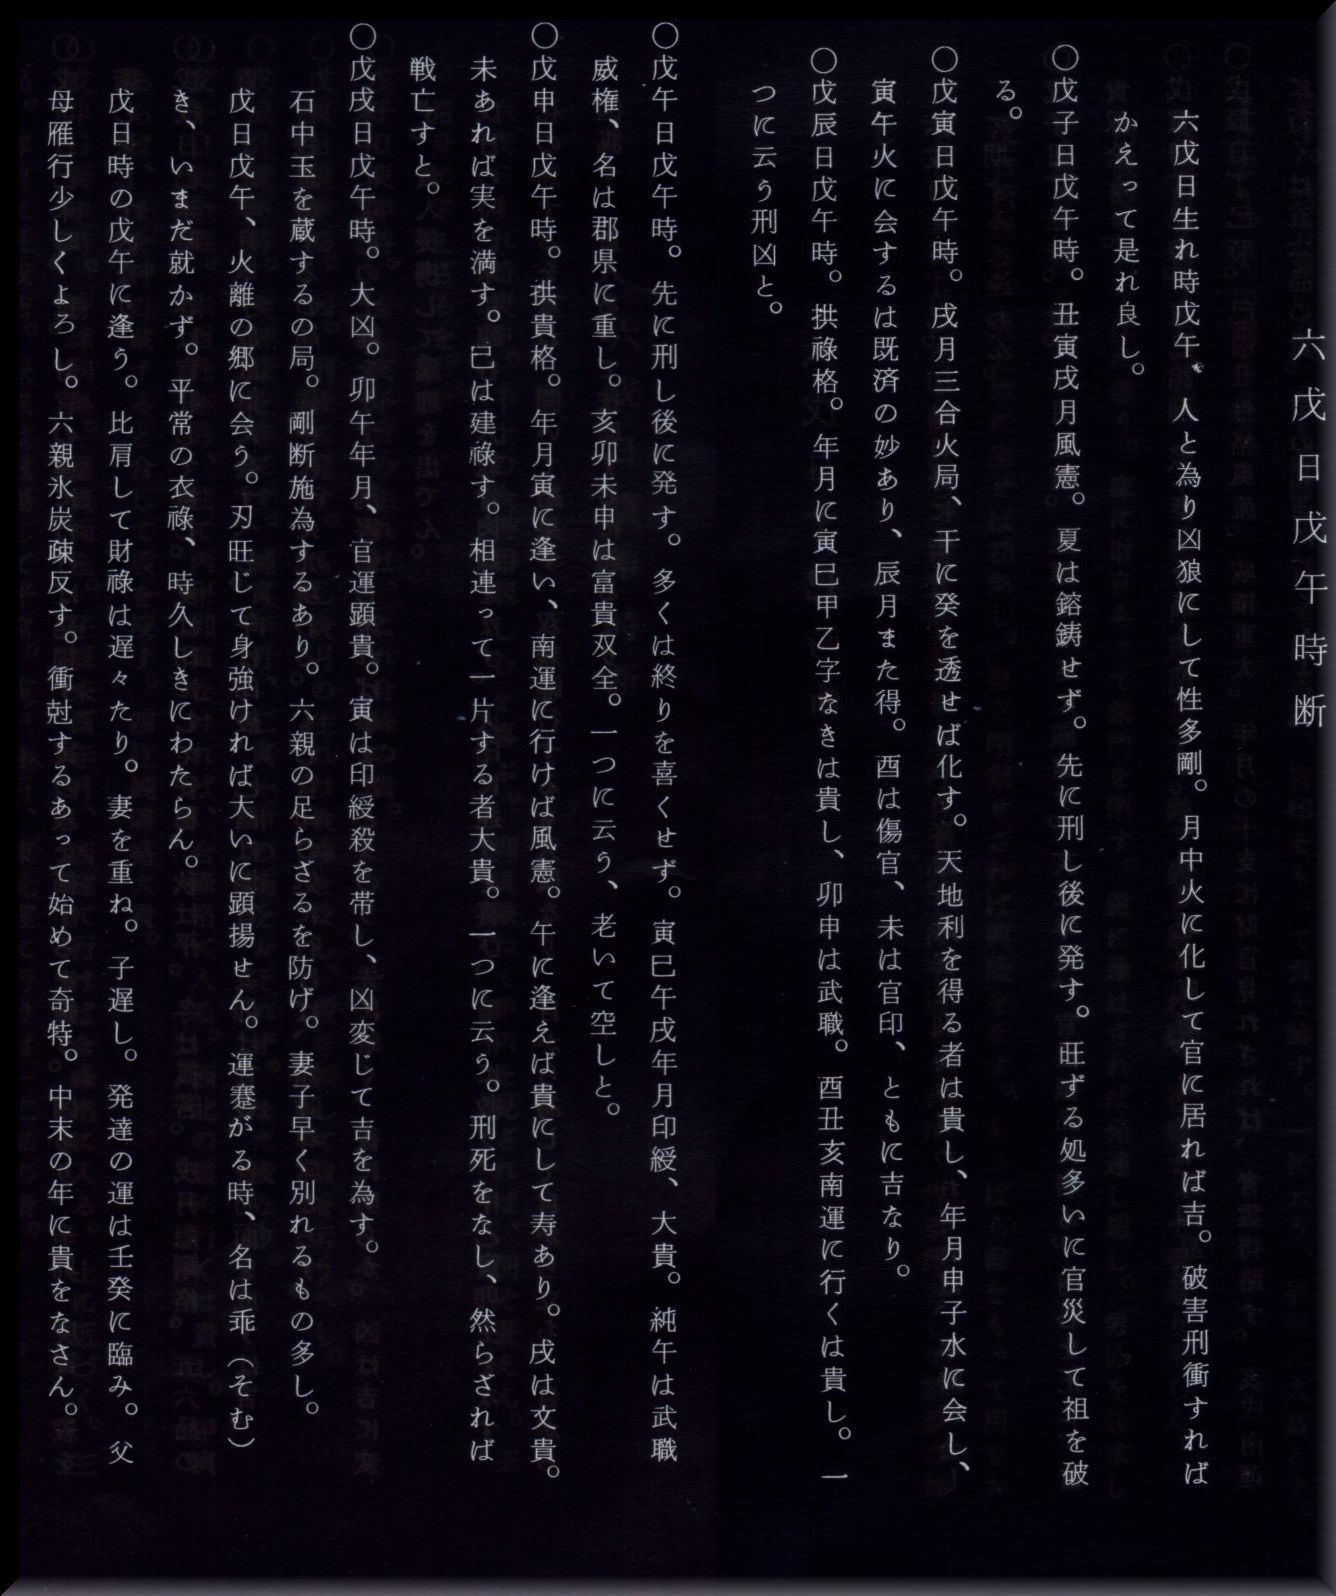 六戊日戊午時断
六戊日生れ時戊午。人と為り凶狼にして性多剛。月中火に化して官に居れば吉。破害刑衝すれば
かえって是れ良し。
〇戊子日戊午時。丑寅戌月風憲。夏は鎔鋳せず。先に刑し後に発す。旺ずる処多いに官災して祖を破
る。
〇戊寅日戊午時。戌月三合火局、干に癸を透せば化す。天地利を得る者は貴し、年月申子水に会し、
寅午火に会するは既済の妙あり、辰月また得。酉は傷官、未は官印、ともに吉なり。
〇戊辰日戊午時。拱祿格。年月に寅巳甲乙字なきは貴し、卯申は武職。酉丑亥南運に行くは貴し。一
つに云う刑凶と。
〇戊午日戊午時。先に刑し後に発す。多くは終りを喜くせず。寅巳午戌年月印綬、大貴。純午は武職
威権、名は郡県に重し。亥卯未申は富貴双全。一つに云う、老いて空しと。
〇戊申日戊午時。拱貴格。年月寅に逢い、南運に行けば風憲。午に逢えば貴にして寿あり。戌は文貴。
未あれば実を満す。巳は建祿す。相連って一片する者大貴。一つに云う。刑死をなし、然らざれば
戦亡すと。
〇戊戌日戊午時。大凶。卯午年月、官運顕貴。寅は印綬殺を帯し、凶変じて吉を為す。
石中玉を蔵するの局。剛断施為するあり。六親の足らざるを防げ。妻子早く別れるもの多し。
戊日戊午、火離の郷に会う。刃旺じて身強ければ大いに顕揚せん。運蹇がる時、名は乖（そむ）
き、いまだ就かず。平常の衣祿、時久しきにわたらん。
戊日時の戊午に逢う。比肩して財祿は遅々たり。妻を重ね。子遅し。発達の運は壬癸に臨み。父
母雁行少しくよろし。六親氷炭疎反す。衝尅するあって始めて奇特。中末の年に貴をなさん。